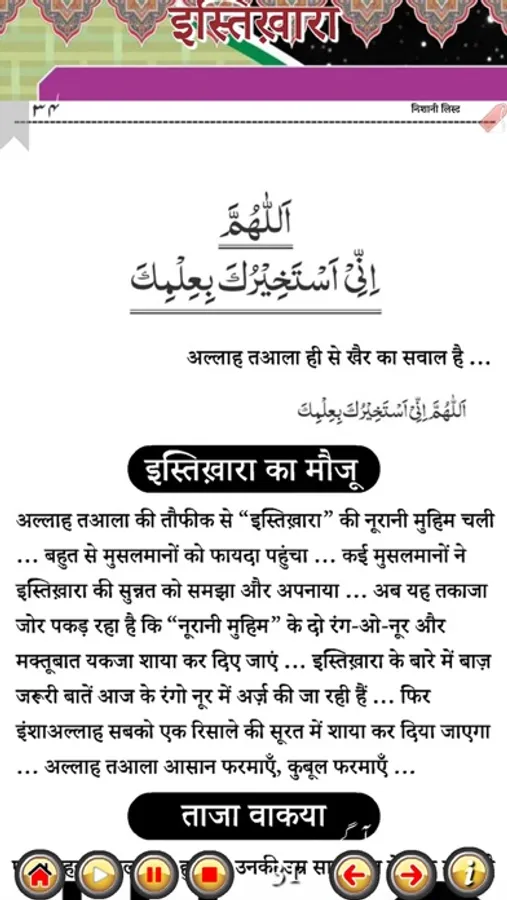 इस्तिख़ारा
۳۴
निशानी लिस्ट
اَللّٰهُمَّ
اِنِّىْ اَسْتَخِيْرُكَ بِعِلْمِكَ
अल्लाह तआला ही से खैर का सवाल है ...
اَللّٰهُمَّ اِنِّىْ اَسْتَخِيْرُكَ بِعِلْمِكَ
इस्तिख़ारा का मौजू
अल्लाह तआला की तौफीक से “इस्तिख़ारा” की नूरानी मुहिम चली
... बहुत से मुसलमानों को फायदा पहुंचा ... कई मुसलमानों ने
इस्तिख़ारा की सुन्नत को समझा और अपनाया ... अब यह तकाजा
जोर पकड़ रहा है कि “नूरानी मुहिम” के दो रंग-ओ-नूर और
मक्तूबात यकजा शाया कर दिए जाएं ... इस्तिख़ारा के बारे में बाज़
जरूरी बातें आज के रंगो नूर में अर्ज़ की जा रही हैं ... फिर
इंशाअल्लाह सबको एक रिसाले की सूरत में शाया कर दिया जाएगा
... अल्लाह तआला आसान फरमाएँ, कुबूल फरमाएँ ...
ताजा वाकया
उनकी उम्र
31